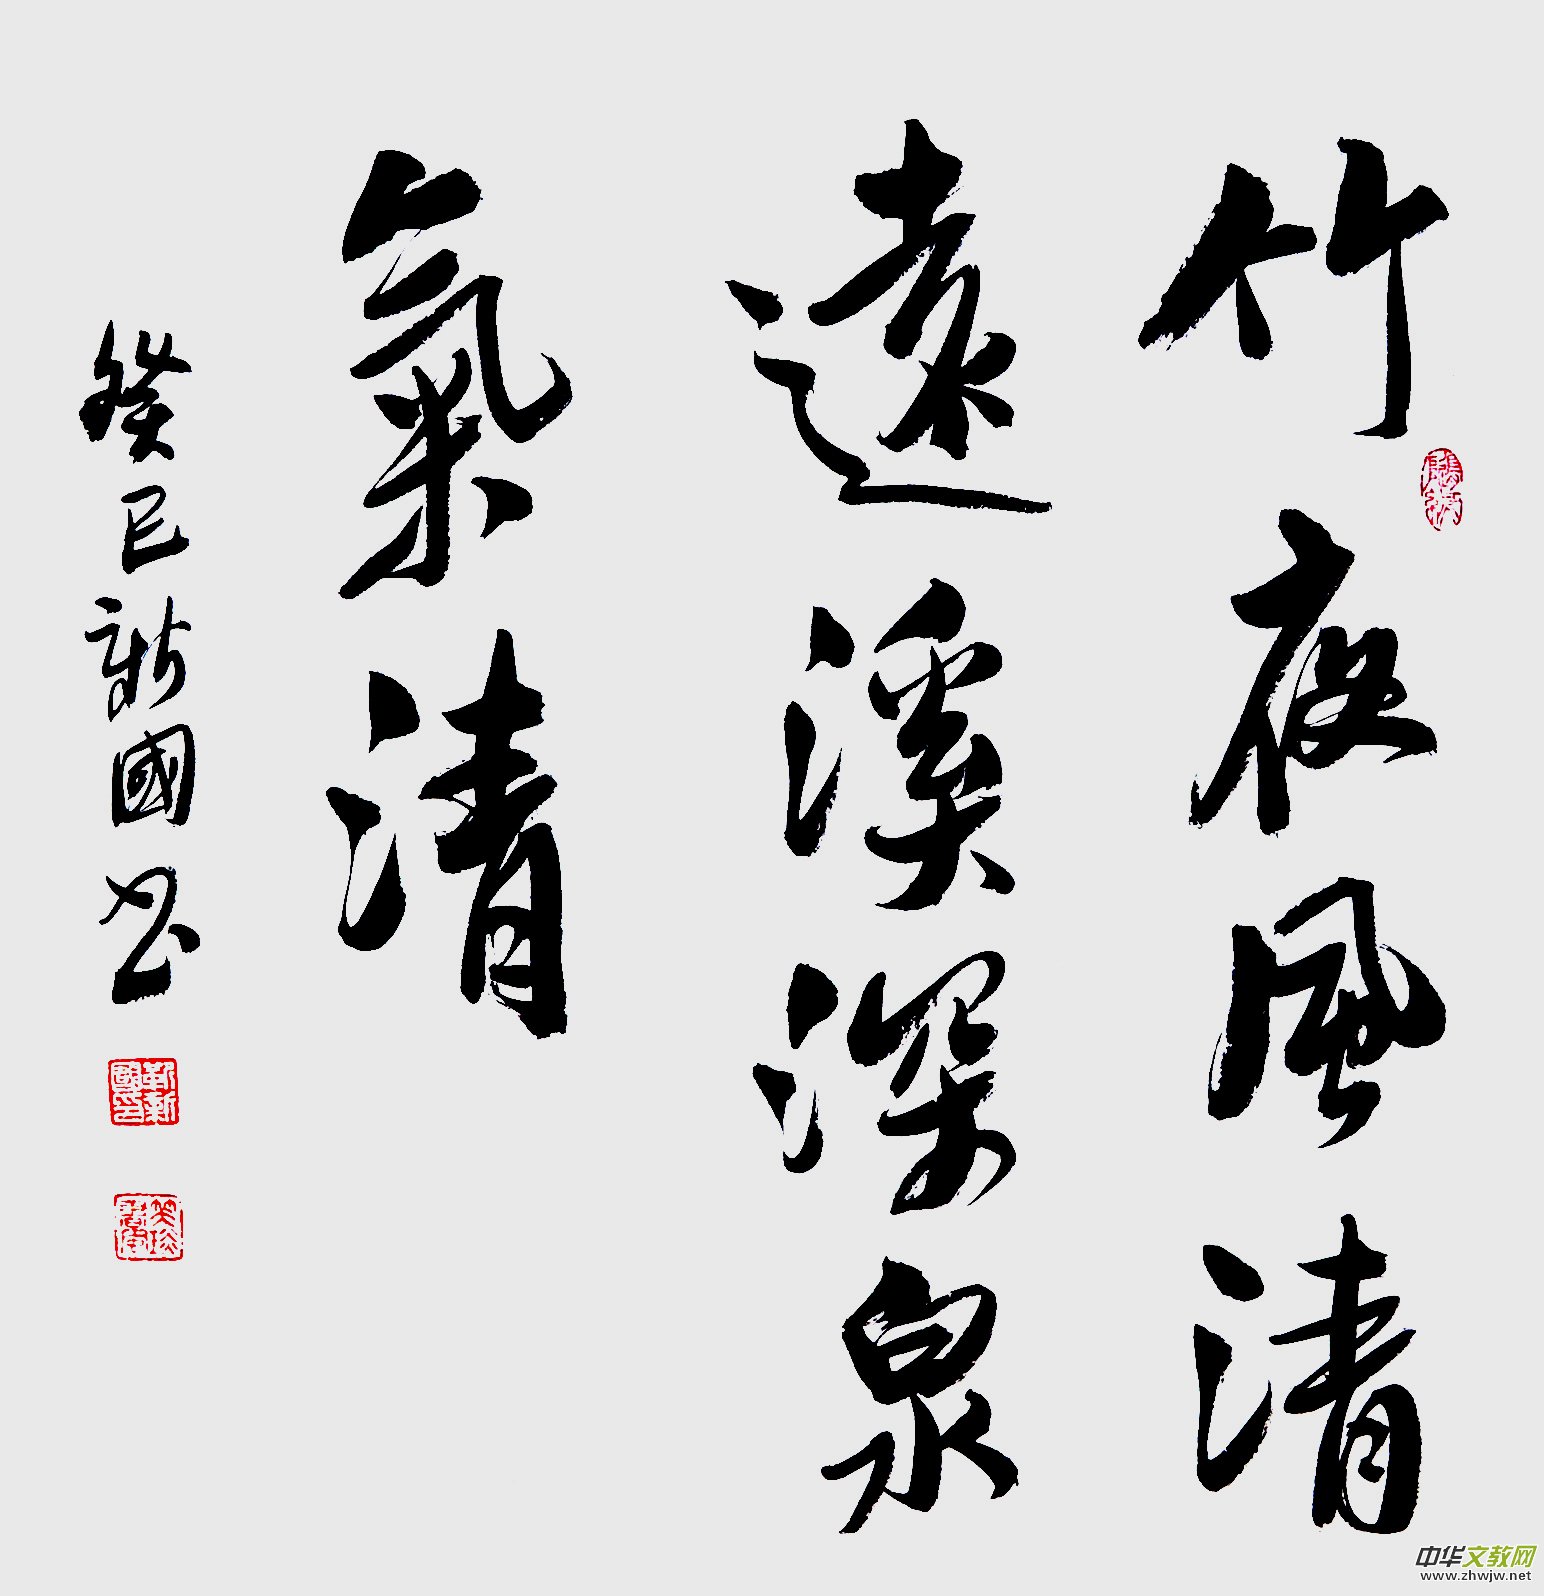 竹夜風清
遠溪深泉
氣清
癸巳新國书
靳新國印
中华文教网
www.zhwjw.net